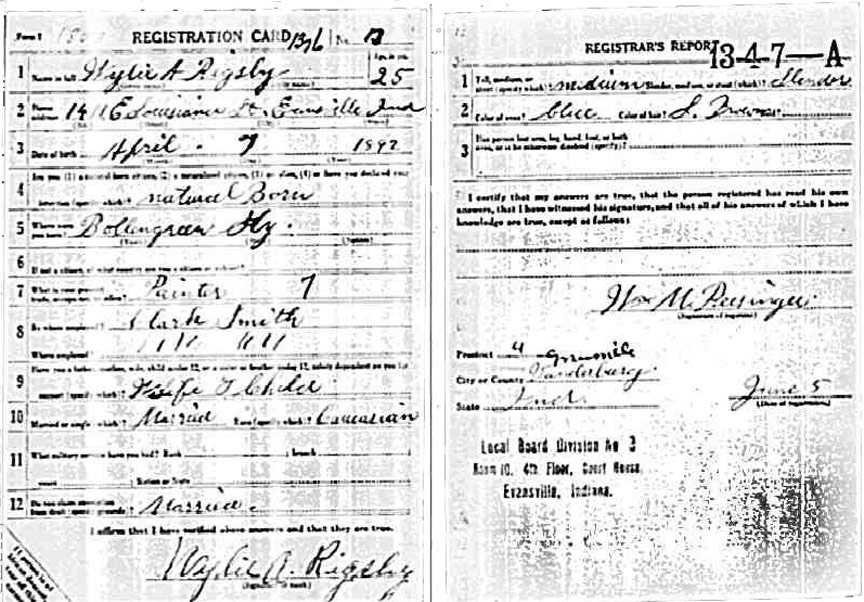 Form 1 REGISTRATION CARD 1376 No. 13
1 Name in full Wylie A Rigsby 25
2 Home address 1411 E Louisiana St. Evansville Ind
3 Date of birth April 7 1892
4 Are you (1) a natural born citizen, (2) a naturalized citizen, (3) an alien, (4) or have you declared your
intention (specify which)? natural Born
5 Where were you born? Bollengreen Ky.
6 If not a citizen, of what country are you a citizen or subject?
7 What is your present trade, occupation, or office? Painter 7
8 By whom employed? Clark Smith
Where employed?
9 Have you a father, mother, wife, child under 12, or a sister or brother under 12, solely dependent on you for
support (specify which)? Wife & Child
10 Married or single (which)? Married Race (specify which)? Caucasian
11 What military service have you had? Rank branch
years Nation or State
12 Do you claim exemption from draft (specify grounds)? Married.
I affirm that I have verified above answers and that they are true.
Wylie A. Rigsby
(Signature or mark)
REGISTRAR'S REPORT 13-4-7-A
1 Tall, medium, or short (specify which)? medium Slender, medium, or stout (which)? Slender
2 Color of eyes? blue Color of hair? L. Brown
3 Has person lost arm, leg, hand, foot, or both
eyes, or is he otherwise disabled (specify)?
I certify that my answers are true, that the person registered has read his own
answers, that I have witnessed his signature, and that all of his answers of which I have
knowledge are true, except as follows:
Wm M.
(Signature of registrar)
Precinct 4 Evansville
City or County Vanderburg
State Ind. June 5
(Date of registration)
Local Board Division No 3
Room 10, 4th Floor, Court House,
Evansville, Indiana.